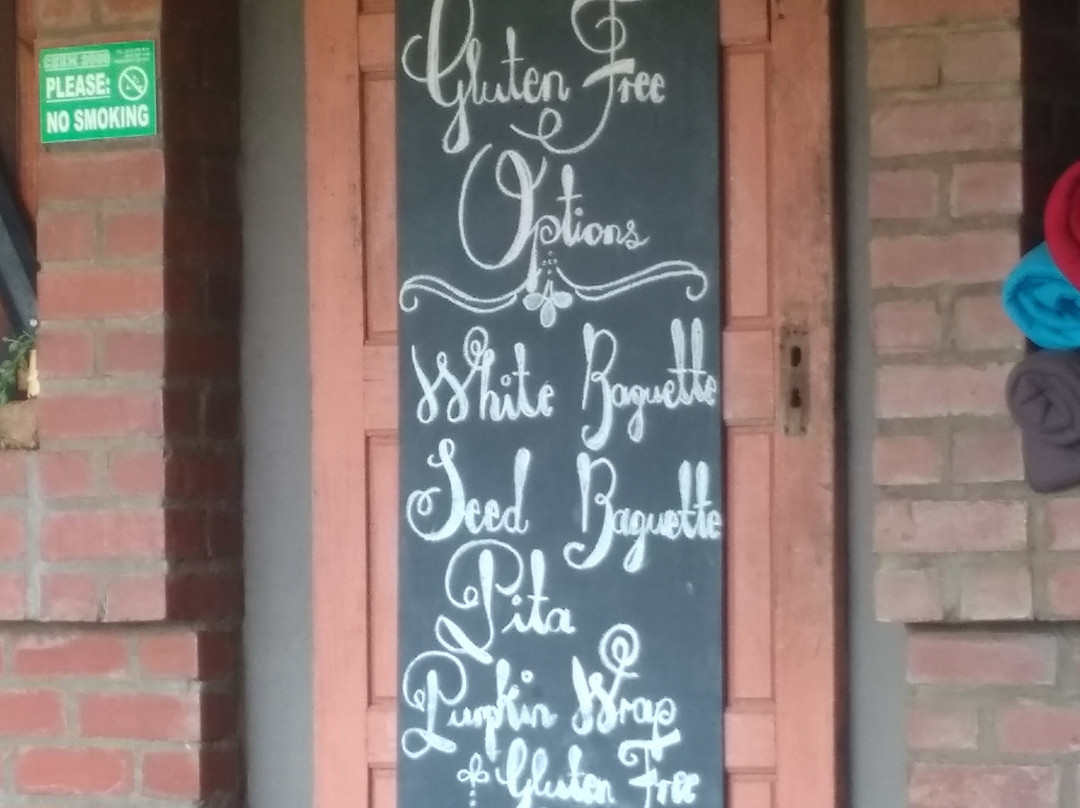 PLEASE:
NO SMOKING
Gluten Free
Options
White Baguette
Seed Baguette
Pita
Pumpkin Wrap
Gluten Free